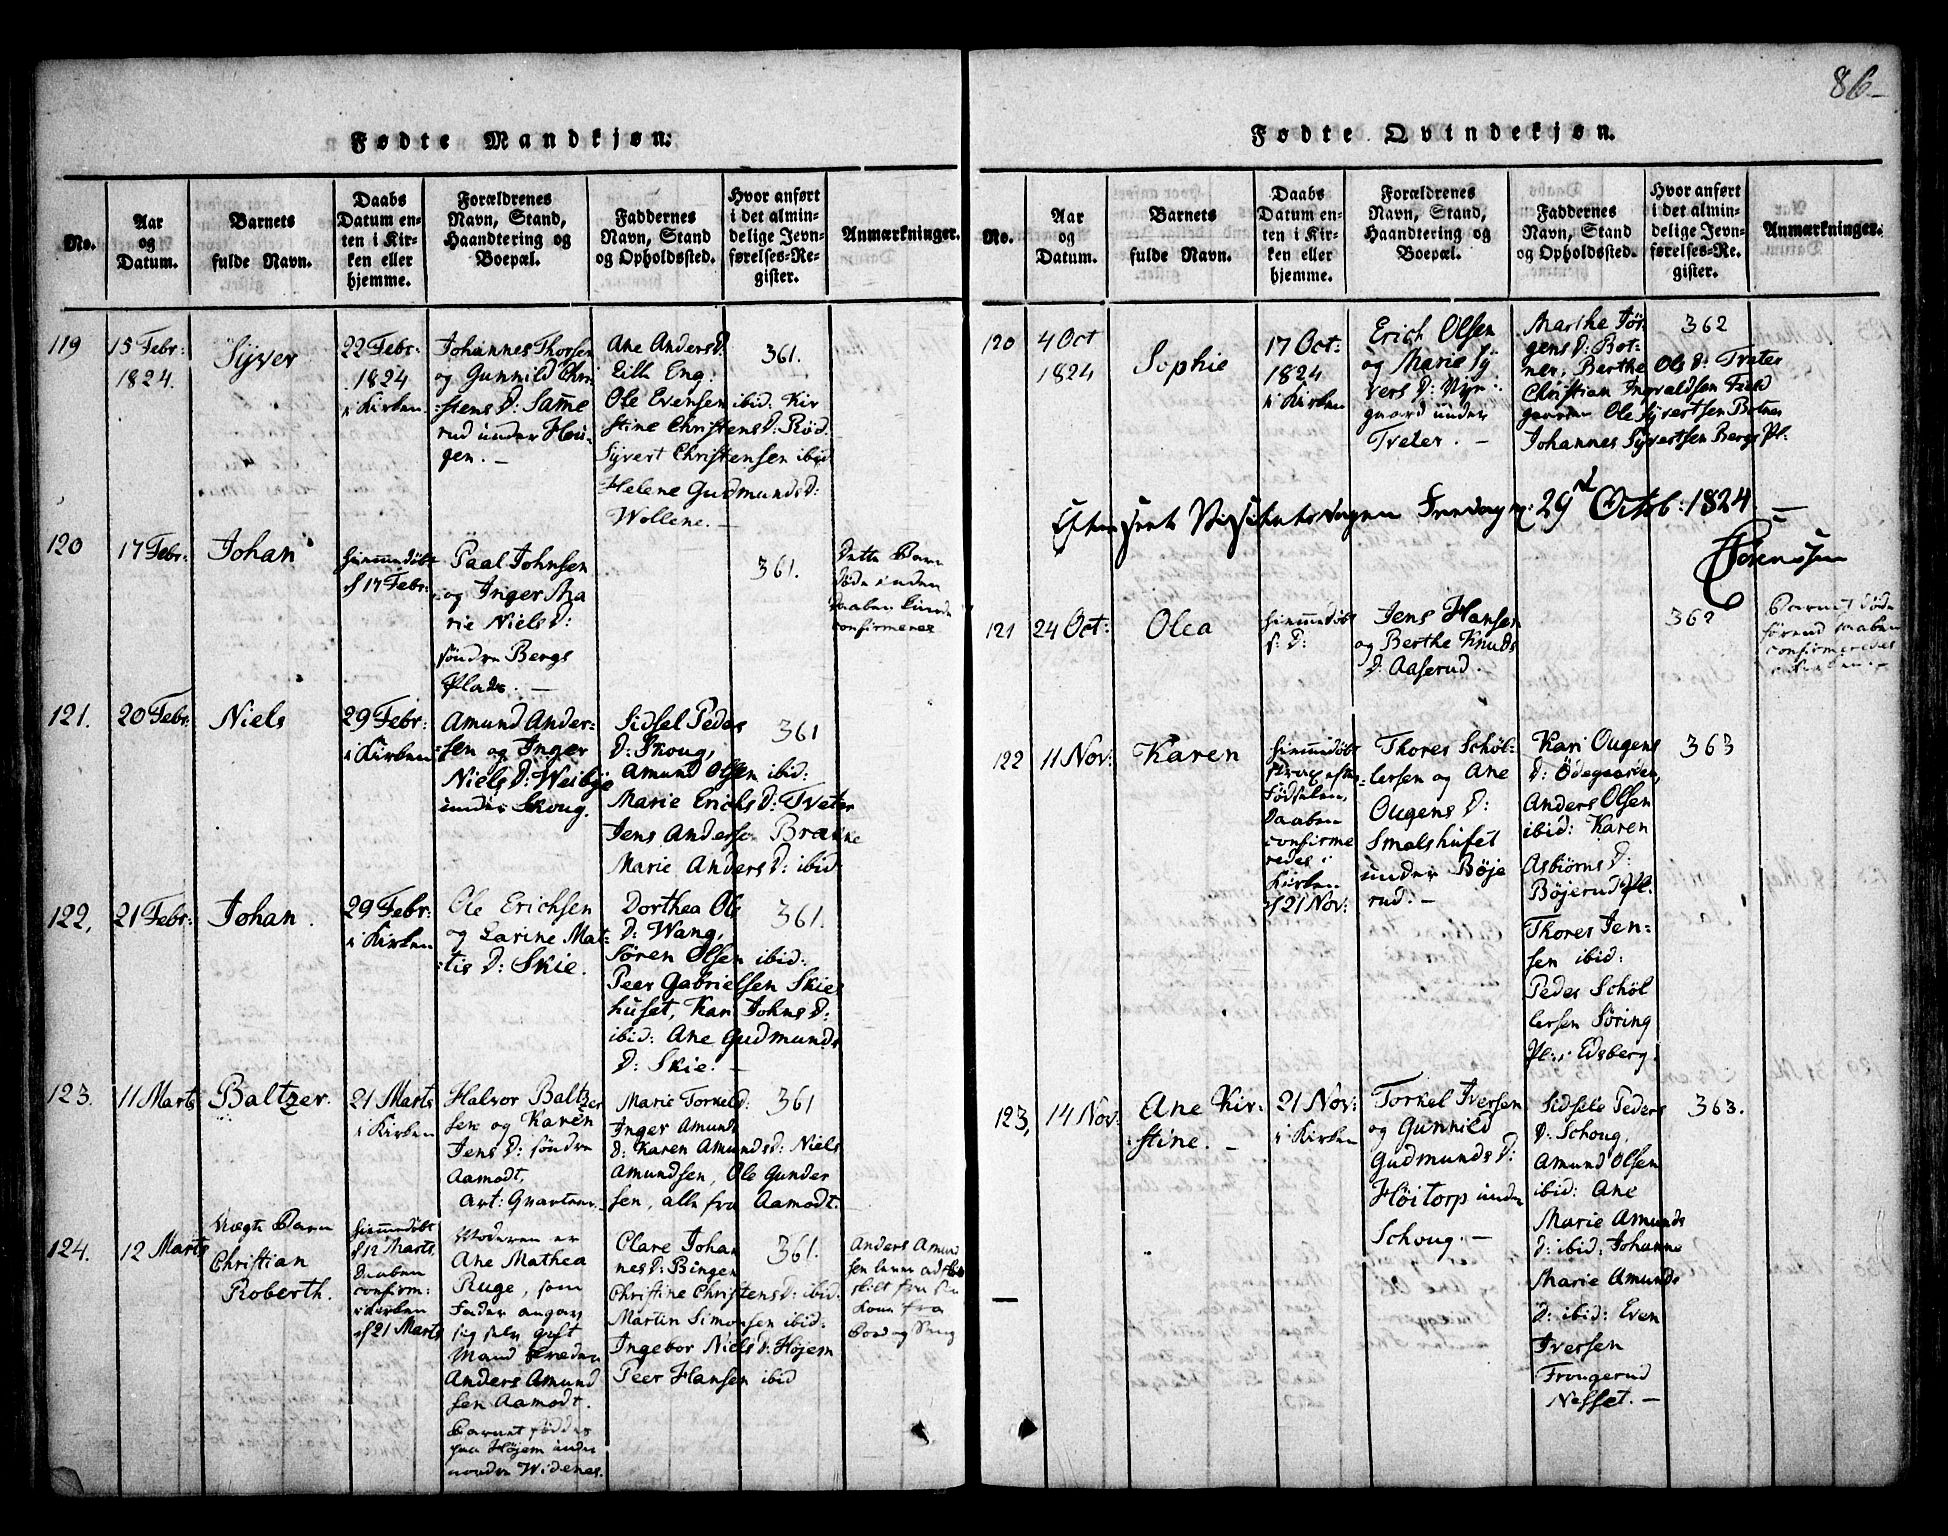 86
Fødte Mandkjøn.
No.
Aar
og
Datum.
Barnets
fulde Navn.
Daabs
Datum en-
ten i Kir-
ken eller
hjemme.
Forældrenes
Navn, Stand,
Haandtering og
Boepæl.
Faddernes
Navn, Stand
og Opholdssted.
Hvor anført
i det almin-
delige Jevn-
førelses-Re-
gister.
Anmærkninger.
119
15 Febr:
1824.
Syver
22 Febr:
1824
i Kirken
Johannes Thorsen
og Gunnild Chri
stens D: Samme
rud under Hou-
gen. -
Ane Anders D.
Lille Eng.
Ole Evensen ibid. Kir
stine Christens D: Rød.
Syvert Christensen ibid
Helene Gudmunds D:
Wollene. -
361.
120
17 Febr:
Johan
hiemmedøbt
d 17 Febr:
Paal Johnsen
og Inger Ma
rie Niels D:
søndre Bergs
Plads. -
361.
Dette Barn
døde inden
Daaben kunde
confirmeres
121.
20 Febr:
Niels
29 Febr:
i Kirken
Amund Ander-
sen og Inger
Niels D: Weibye
under Skoug.
Sidsel Peders
D: Skoug,
Amund Olsen ibid:
Marie Erichs D: Tveter
Jens Anderse Brænne
Marie Anders D: ibid:
361
122,
21 Febr:
Johan.
29 Febr:
i Kirken
Ole Erichsen
og Larine Mat-
tis D: Skie.
Dorthea Ols
D: Wang,
Søren Olsen ibid:
Peer Gabrielsen Skies
huset, Kari Johns D:
ibid: Ane Gudmunds
D: Skie. -
361.
123.
11 Marts
Baltzer.
21 Marts
i Kirken
Halvor Baltzer
sen og Karen
Jens D: søndre
Aamodt,
Art: Qvarteer.
Marie Torkelsd:
Inger Amunds
D: Karen Amunds D: Niels
Amundsen, Ole Gunder
sen, alle fra Aamodt.
361
124.
12 Marts
Uægte Barn
Christian
Roberth.
hiemmedøbt
d 12 Marts,
Daaben
confirm:
i Kirken
d 21 Marts
Moderen er
Ane Mathea
Ruge, som
Fader angav
sig selv gift
Mand
Anders Amund
sen Aamodt.
Barnet føddes
paa Højem under
nordre Widenes.
Clare Johan
nes D: Bingen
Christine Christens D: ibid.
Martin Simonsen ibid:
Ingebor Niels D: Højem
Peer Hansen ibid
361.
Anders Amund
sen lever ad
skilt fra sin
Kone fra
Bord og Seng
Fødte Qvindekjøn.
No.
Aar
og
Datum.
Barnets
fulde Navn.
Daabs
Datum en-
ten i Kir-
ken eller
hjemme.
Forældrenes
Navn, Stand,
Haandtering og
Boepæl.
Faddernes
Navn, Stand
og Opholdssted.
Hvor anført
i det almin-
delige Jevn-
førelses-Re-
gister.
Anmærkninger.
120
4 Oct
1824
Sophie
17 Oct:
1824
i Kirken
Erich Olsen
og Marie Sy
vers D:
gaard under
Tveter. -
Marthe Jør
gens D: Bot-
ner, Berthe Ols D: Tveter
Christian Ingvaldsen
Ole Syvertsen Botner
Johannes Syvertsen Bergs Pl:
362
Efterseet Visitatsdagen Fredag 29d Octob: 1824 -
Sørenssen
121
24 Oct:
Olea
hiemmedøbt
s: D:
Jens Hansen
og Berthe Knuds
D: Aaserud.
362
Barnet døde
førend Daaben
confirmeredes
122
11 Nov:
Karen
hiemmedøbt
strax efter
Fødselen,
Daaben
confirme
redes i
Kirken
d 21 Nov:
Thores Schøl-
lersen og Ane
Ougens D:
Smalshuset
under Bøje
rud. -
Kari Ougens
D: Ødegaarden,
Anders Olsen
ibid: Karen
Asbiørns D:
Bøjerud Pl.
Thores Jen-
sen ibid:
Peder Schøl
lersen Søring
Pl: i Edsberg.
363
123,
14 Nov:
Ane Kir-
stine. -
21 Nov:
i Kirken
Torkel Iversen
og Gunnild
Gudmunds D:
Høitorp under
Schoug. -
Sidsele Peders
D: Schoug,
Amund Olsen
ibid: Ane
Marie Amunds
D: ibid: Johanne
Marie Amunds
D: ibid: Even
Iversen
Frougerud
Nesset. -
363.